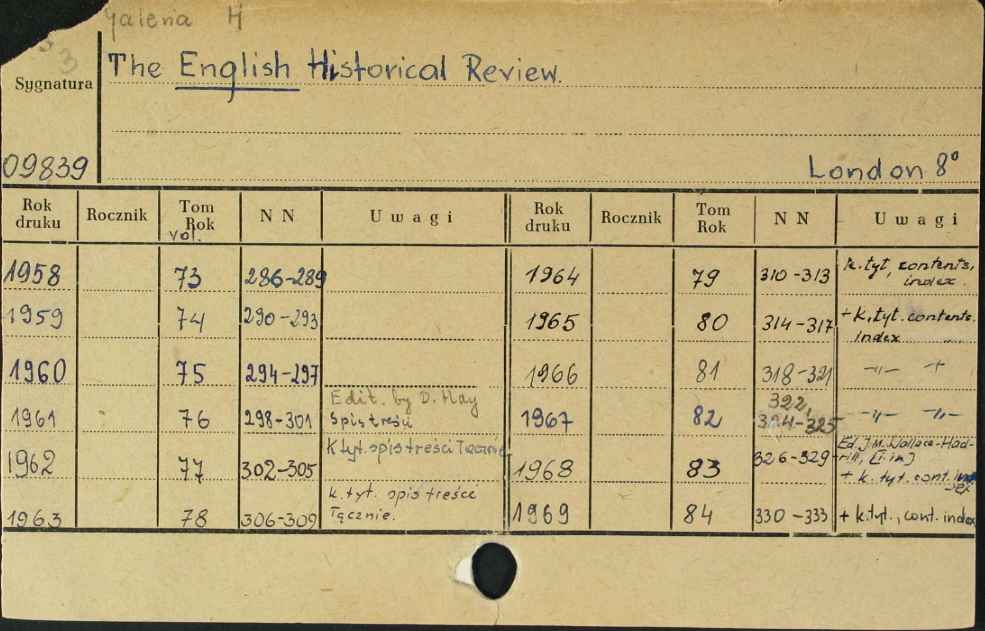 Galeria H
53
Sygnatura
The English Historical Review.
09839
London 8°
Rok druku Rocznik Tom Rok vol. N N Uwagi Rok druku Rocznik Tom Rok N N Uwagi
1958 73 286-289 1964 79 310-313 k.tyt, contents, index.
1959 74 290-293 1965 80 314-317 + k.tyt. contents. index
1960 75 294-297 1966 81 318-321 -"- +
1961 76 298-301 Edit. by D. Hay Spis treści 1967 82 322, 324-325 -"- -"-
1962 77 302-305 K tyt. spis treści Łącznie 1968 83 326-329 Ed. J.M. Wallace-Hadrill, [i in] + k. tyt. cont. index
1963 78 306-309 k. tyt. spis treści Łącznie. 1969 84 330-333 + k.tyt., cont. index